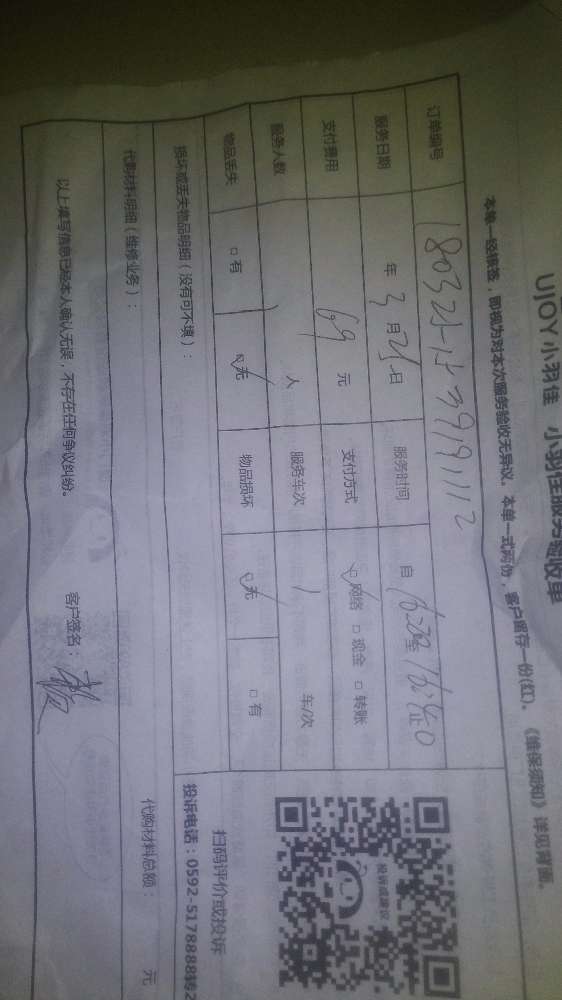 UJOY小羽佳 小羽佳服务验收单
本单一经核签，即视为对本次服务验收无异议。本单一式两份，客户留存一份(红)。《维保须知》详见背面。
订单编号
服务日期 年 3 月 25 日 服务时间 自 至 止
支付费用 69 元 支付方式 □网络 □现金 □转账
服务人数 1 人 服务车次 1 车/次
物品丢失 □有 □无 物品损坏 □无 □有
损坏或丢失物品明细（没有可不填）：
代购材料明细（维修业务）： 代购材料总额： 元
以上填写信息已经本人确认无误，不存在任何争议纠纷。 客户签名：
投诉或建议
扫码评价或投诉
投诉电话：0592-5178888转2